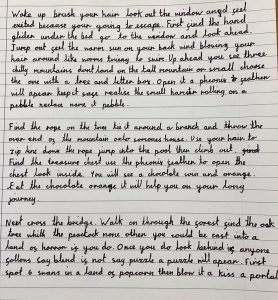 Wake up brush your hair look out the window and feel
excited because your young to escape. First find the hand
glider under the bed go to the window and look ahead.
Jump out feel the warm sun on your back wind blowing your
hair around like worms trying to swim. Up ahead you see three
chilly mountains dont land on the tall mountain or small choose
the one with a tree and letter box. Open it a pheonix feather
will apear keep it sage realise the small hamster rolling on a
pebble necklace name it pebble.
Find the rope on the tree tie it around a branch and throw the
over end of the mountain onto someones house. Use your hair to
zip line down the rope jump into the pool then climb out. 
Find the treasure chest use the pheonix feather to open the
chest look inside. You will see a chocolate coin and orange.
Eat the chocolate orange it will help you on your long
journey.
Next cross the bridge. Walk on through the forest find the oak
tree whith the peacock none other you could be cast into a
land of horror if you do. Once you do look behind if anyone
follons say blend if not say puzzle a puzzle will apear. First
spot 6 swans in a land of popcorn then blow it a kiss a portal